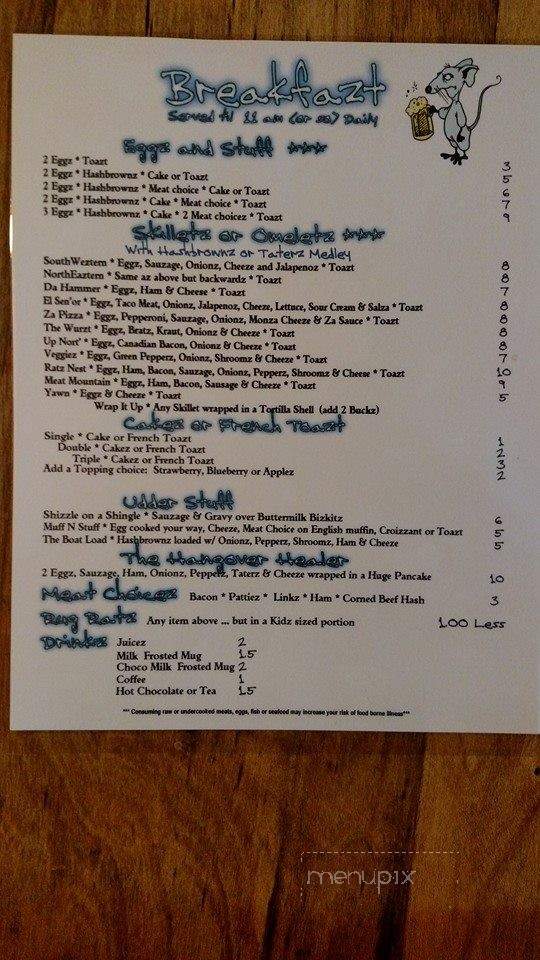 Breakfazt
Served til 11 am (or so) Daily
Eggz and Stuff ***
2 Eggz * Toazt 3
2 Eggz * Hashbrownz * Cake or Toazt 5
2 Eggz * Hashbrownz * Meat choice * Cake or Toazt 6
2 Eggz * Hashbrownz * Cake * Meat choice * Toazt 7
3 Eggz * Hashbrownz * Cake * 2 Meat choicez * Toazt 9
Skilletz or Omeletz ***
With Hashbrownz or Taterz Medley
SouthWeztern * Eggz, Sauzage, Onionz, Cheeze and Jalapenoz * Toazt 8
NorthEaztern * Same az above but backwardz * Toazt 8
Da Hammer * Eggz, Ham & Cheese * Toazt 7
El Sen'or * Eggz, Taco Meat, Onionz, Jalapenoz, Cheeze, Lettuce, Sour Cream & Salza * Toazt 8
Za Pizza * Eggz, Pepperoni, Sauzage, Onionz, Monza Cheeze & Za Sauce * Toazt 8
The Wurzt * Eggz, Bratz, Kraut, Onionz & Cheeze * Toazt 8
Up Nort' * Eggz, Canadian Bacon, Onionz & Cheeze * Toazt 8
Veggiez * Eggz, Green Pepperz, Onionz, Shroomz & Cheeze * Toazt 7
Ratz Nest * Eggz, Ham, Bacon, Sauzage, Onionz, Pepperz, Shroomz & Cheese * Toazt 10
Meat Mountain * Eggz, Ham, Bacon, Sausage & Cheeze * Toazt 9
Yawn * Eggz & Cheeze * Toazt 5
Wrap It Up * Any Skillet wrapped in a Tortilla Shell (add 2 Buckz)
Cakez or French Toazt
Single * Cake or French Toazt 1
Double * Cakez or French Toazt 2
Triple * Cakez or French Toazt 3
Add a Topping choice: Strawberry, Blueberry or Applez 2
Udder Stuff
Shizzle on a Shingle * Sauzage & Gravy over Buttermilk Bizkitz 6
Muff N Stuff * Egg cooked your way, Cheeze, Meat Choice on English muffin, Croizzant or Toazt 5
The Boat Load * Hashbrownz loaded w/ Onionz, Pepperz, Shroomz, Ham & Cheeze 5
The Hangover Healer
2 Eggz, Sauzage, Ham, Onionz, Pepperz, Taterz & Cheeze wrapped in a Huge Pancake 10
Meat Choicez Bacon * Pattiez * Linkz * Ham * Corned Beef Hash 3
Rug Ratz Any item above ... but in a Kidz sized portion 1.00 Less
Drinkz Juicez 2
Milk Frosted Mug 1.5
Choco Milk Frosted Mug 2
Coffee 1
Hot Chocolate or Tea 1.5
*** Consuming raw or undercooked meats, eggs, fish or seafood may increase your risk of food borne illness***
menupix